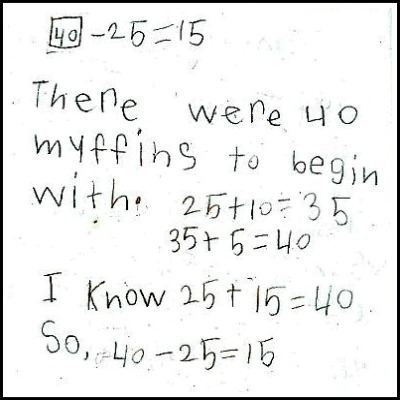 40 - 25 = 15
There were 40
myffins to begin
with. 25 + 10 = 35
35 + 5 = 40
I know 25 + 15 = 40
So, 40 - 25 = 15